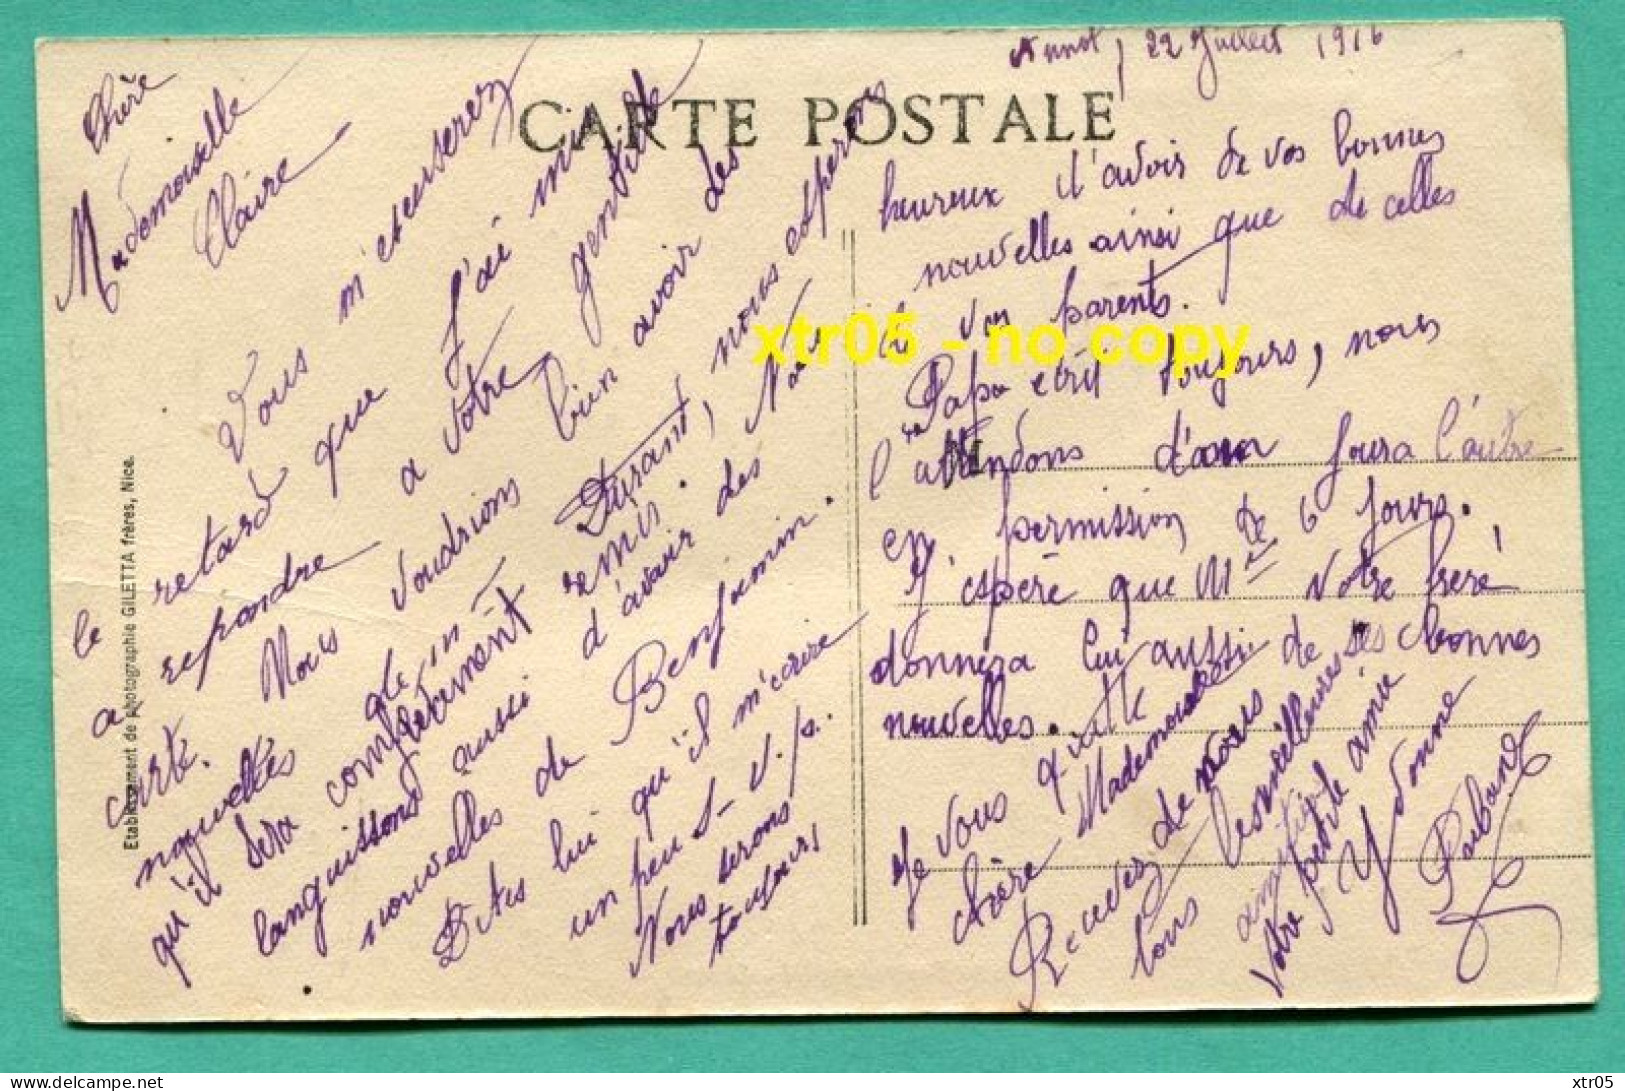 Annot, 22 Juillet 1916
CARTE POSTALE
Chère
Mademoiselle
Claire
Vous m'excuserez
le retard que j'ai mis
a repondre a votre gentille
carte. Nous voudrions bien avoir des
nouvelles de M Durant, nous esperons
qu'il sera complètement remis. Nous
languissons aussi d'avoir des
nouvelles de Benjamin.
Dites lui qu'il m'écrive
un peu S.V.p.
Nous serons
toujours
heureux d'avoir de vos bonnes
nouvelles ainsi que de celles
de vos parents.
Papa écrit toujours, nous
l'attendons d'un jour a l'autre
en permission de 6 jours.
J'espère que Mr votre frère
donnera lui aussi de ses bonnes
nouvelles.
Je vous quitte
chère Mademoiselle.
Recevez de nous
tous les meilleures
amitiés
Votre petite amie
Yvonne
Paubano
Etablissement de photographie GILETTA frères, Nice.
xtr05 - no copy
www.delcampe.net
xtr05